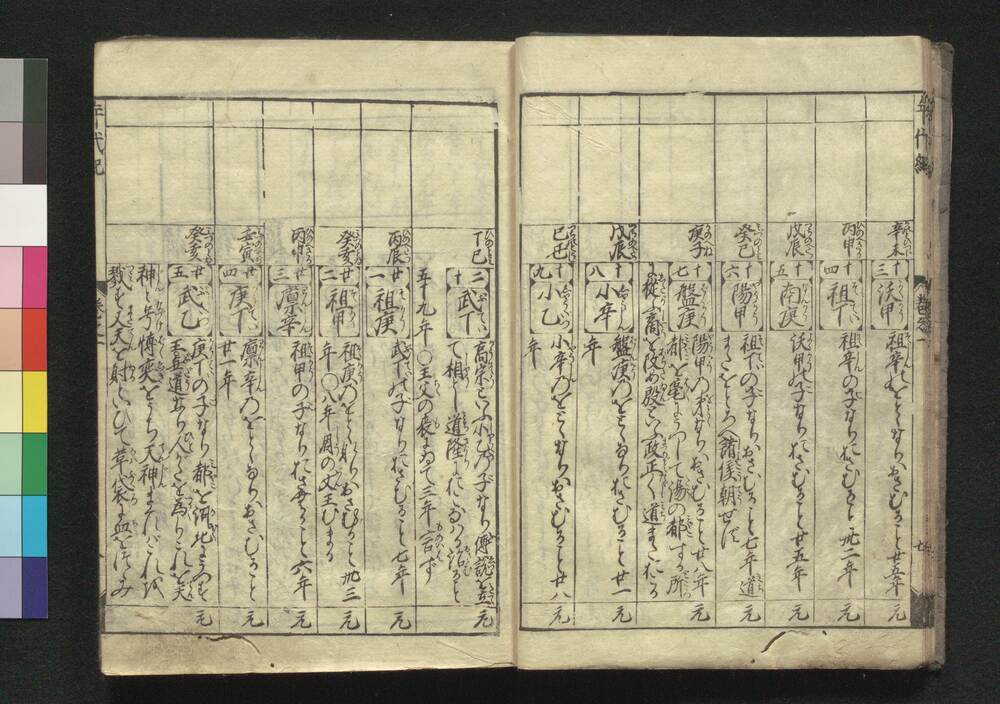 辛未
十三 沃甲 祖辛のをとゝなりおさむること廿五年 元
丙申
十四 祖丁 祖辛の子なりおさむること卅二年 元
戊辰
十五 南庚 沃甲の子なりおさむること廿五年 元
癸巳
十六 陽甲 祖丁の子なりおさむること七年道
またおとろへ諸侯朝せず 元
庚子
十七 盤庚 陽甲の弟なりおさむること廿八年
都を亳にうつして湯の都する所
に従ふ商を改め殷といふ政正しく道またおこる 元
戊辰
十八 小辛 盤庚のをとゝなりおさむること廿一
年 元
己丑
十九 小乙 小辛のをとゝなりおさむること廿八
年 元
丁巳
二十 武丁 高宗といふ小乙の子なり傅説を
て相とし道隆におこなはる治ること
五十九年〇王父の喪にゐて三年言ず 元
丙辰
廿一 祖庚 武丁の子なりおさむること七年 元
癸亥
廿二 祖甲 祖庚のをとゝなりおさむること卅三
年〇八年周の文王むまる 元
丙申
廿三 廩辛 祖甲の子なりおさむること六年 元
壬寅
廿四 庚丁 廩辛のをとゝなりおさむること
廿一年 元
癸亥
廿五 武乙 庚丁の子なり都を河北にうつす
王無道なり人かたを為りこれを天
神と号博奕をうち天神まくればこれを
戮す又天を射るといひて革袋に血をつゝみ 元
年代記